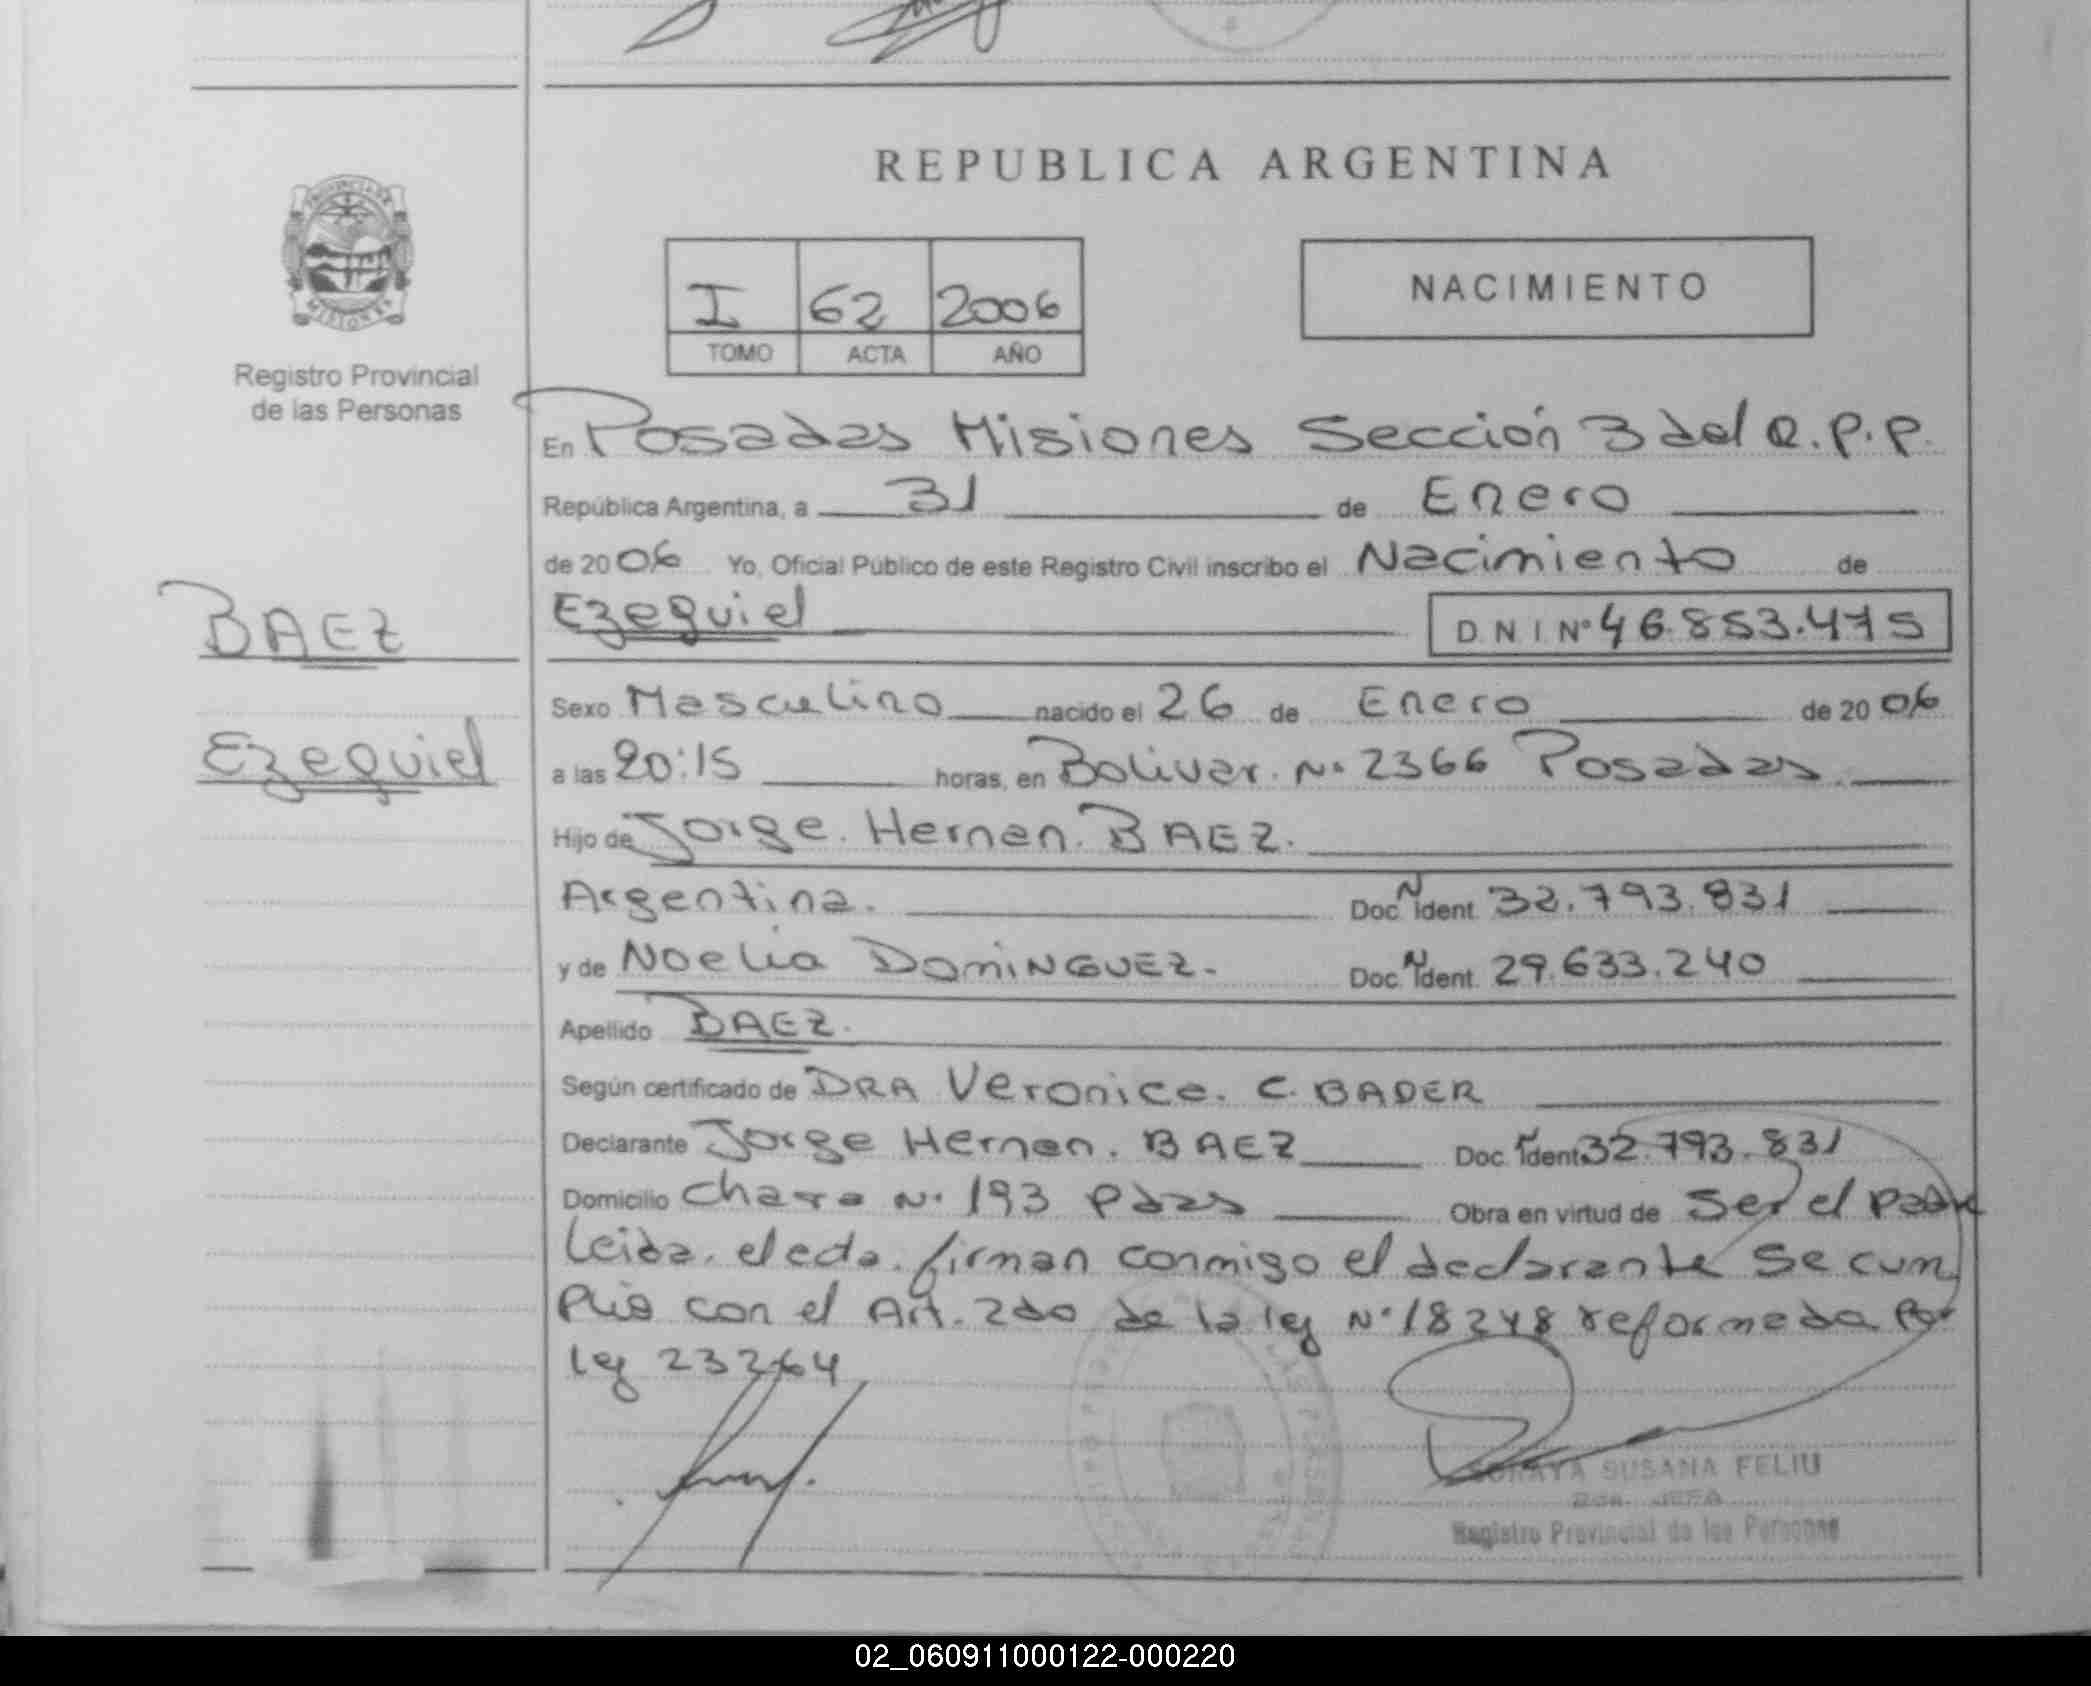 REPUBLICA ARGENTINA
PROVINCIA DE
MISIONES
Registro Provincial
de las Personas
I 62 2006
TOMO ACTA AÑO
NACIMIENTO
En Posadas Misiones Sección 3 del R.P.P.
República Argentina, a 31 de Enero
de 2006 Yo, Oficial Público de este Registro Civil inscribo el Nacimiento de
BAEZ
Ezequiel D N I Nº 46.853.475
Sexo Masculino nacido el 26 de Enero de 2006
Ezequiel
a las 20:15 horas, en Bolivar. Nº 2366 Posadas.
Hijo de Jorge. Hernan. BAEZ.
Argentina. Doc. N Ident. 32.793.831
y de Noelia DOMINGUEZ. Doc. N Ident. 29.633.240
Apellido BAEZ.
Según certificado de DRA Veronica. C. BADER
Declarante Jorge Hernan. BAEZ Doc. N Ident. 32.793.831
Domicilio Nº 193 Pdas Obra en virtud de Ser el padre
Leida. el acta. firman conmigo el declarante Se cum
plio con el Art. 2do de la ley Nº 18248 reformada por
ley 23264
SORAYA SUSANA FELIU
JEFA
Registro Provincial de las Personas
02_060911000122-000220